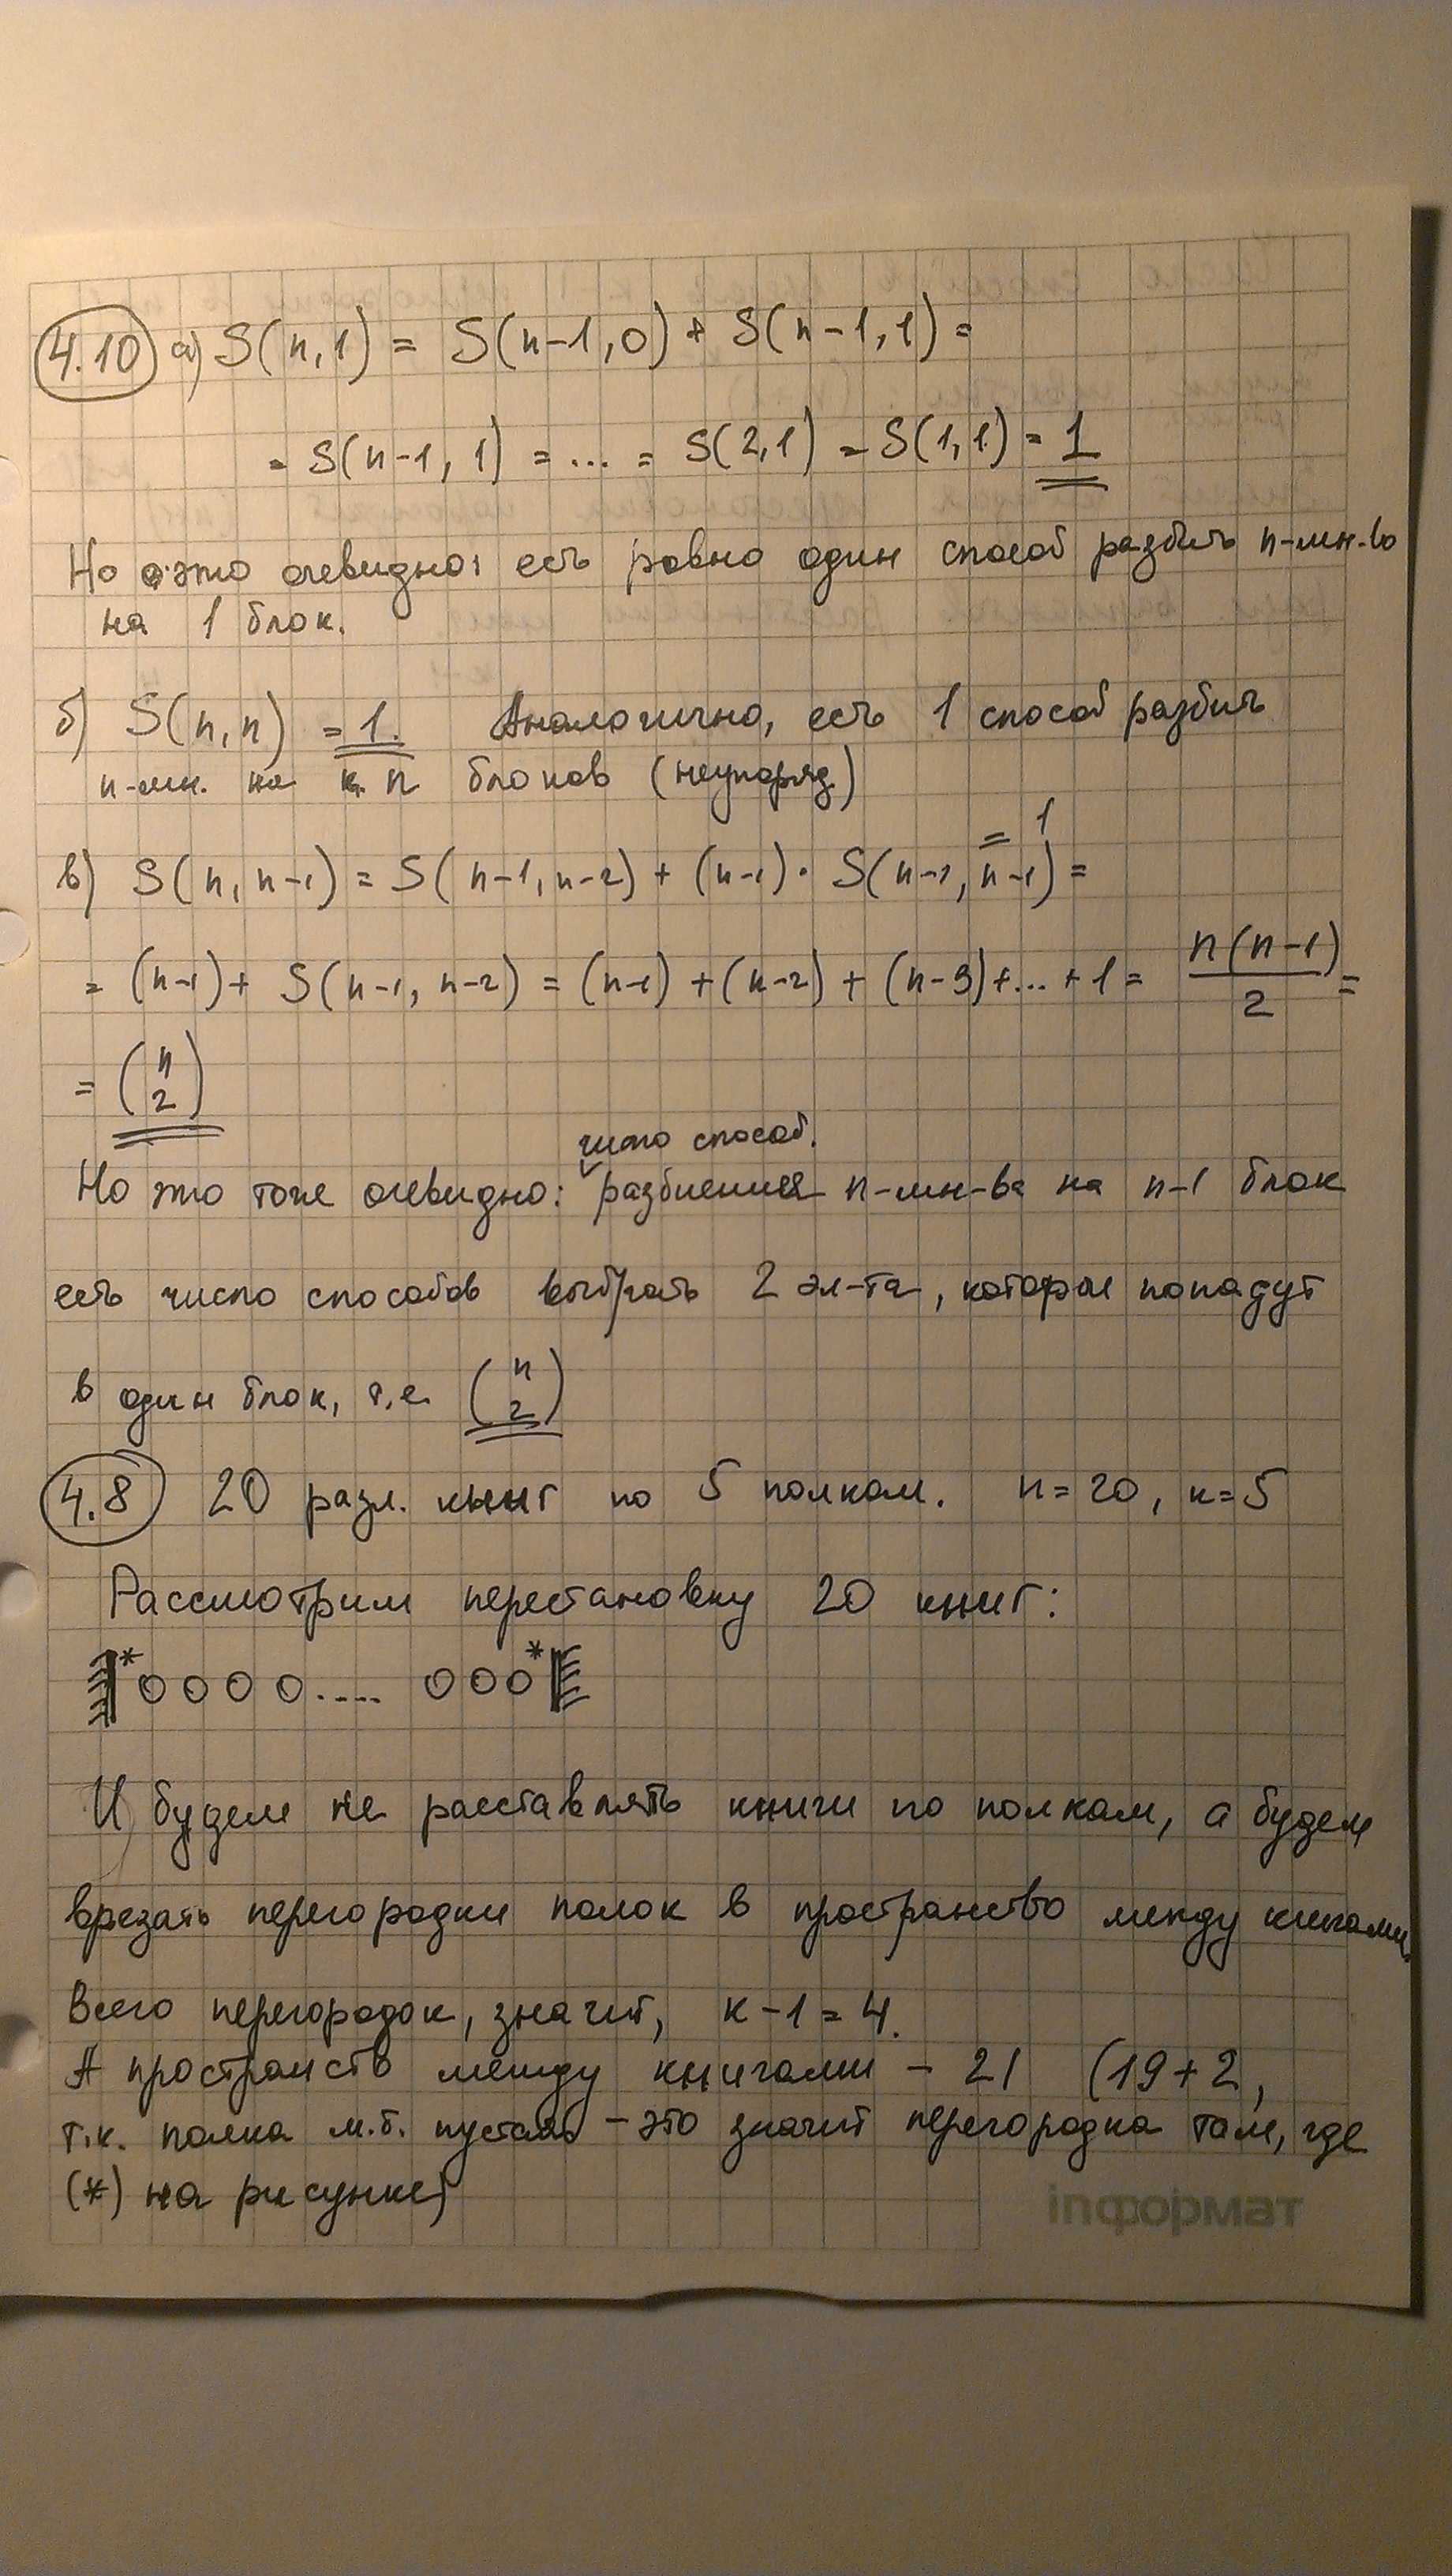 4.10 а) S(n,1) = S(n-1,0) + S(n-1,1) =
= S(n-1,1) = ... = S(2,1) = S(1,1) = 1
Но это очевидно: есть ровно один способ разбить n-мн-во
на 1 блок.
б) S(n,n) = 1. Аналогично, есть 1 способ разбить
n-мн. на n блоков (неупоряд)
= 1
в) S(n,n-1) = S(n-1,n-2) + (n-1)· S(n-1,n-1) =
= (n-1) + S(n-1,n-2) = (n-1) + (n-2) + (n-3) + ... + 1 = n(n-1)/2 =
= (n 2)
число способ.
Но это тоже очевидно: разбиения n-мн-ва на n-1 блок
есть число способов выбрать 2 эл-та, которые попадут
в один блок, т.е. (n 2)
4.8 20 разл. книг по 5 полкам. n=20, к=5
Рассмотрим перестановку 20 книг:
*0000..... 000*
И будем не расставлять книги по полкам, а будем
врезать перегородки полок в пространство между книгами.
Всего перегородок, значит, к-1=4.
А пространств между книгами - 21 (19+2,
т.к. полка м.б. пустая - это значит перегородка там, где
(*) на рисунке)
inформат